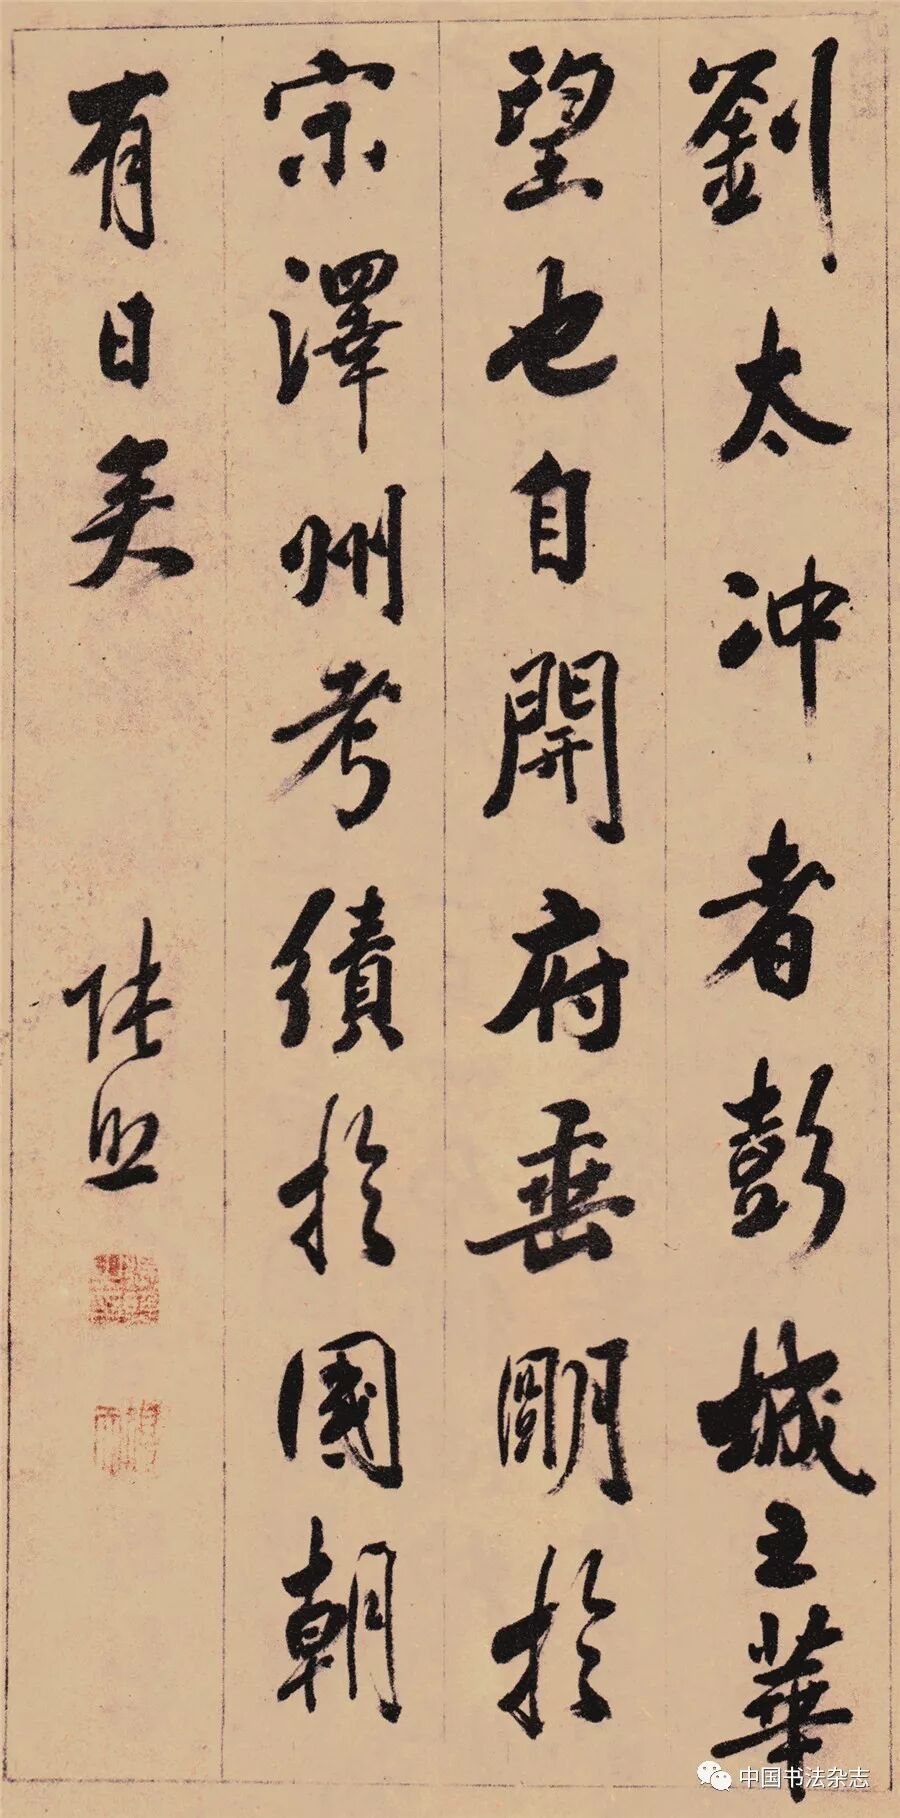 劉太冲者彭城之華
望也自開府垂朙於
宋澤州考績於國朝
有日矣
張照
中国书法杂志